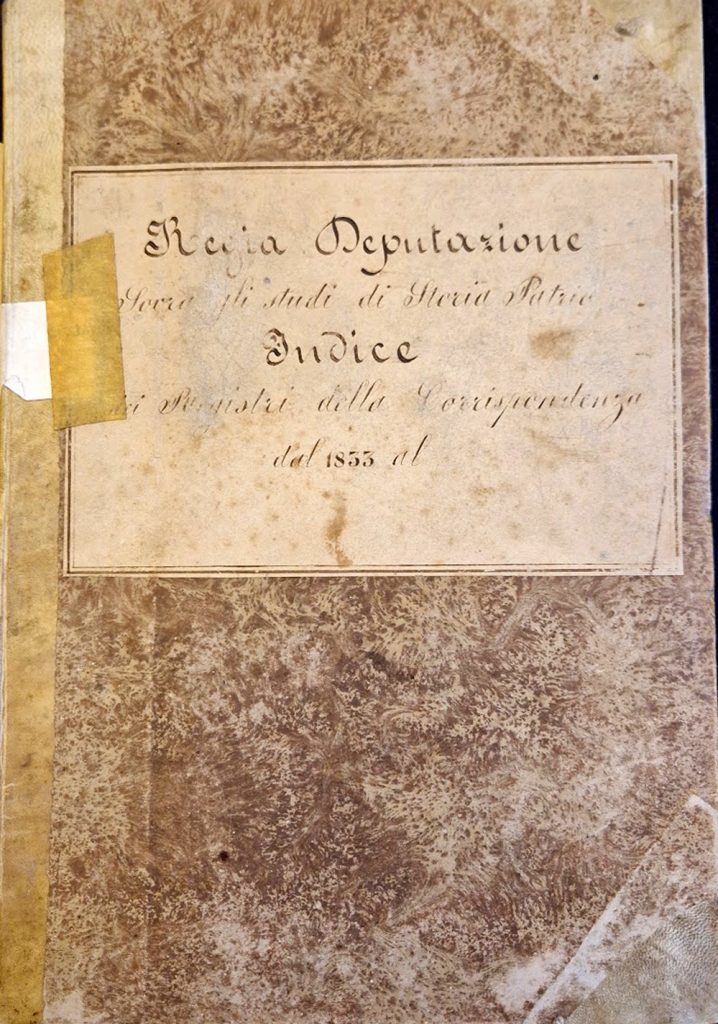 Regia Deputazione
Sovra gli studi di Storia Patria
Indice
dei Registri della Corrispondenza
dal 1833 al